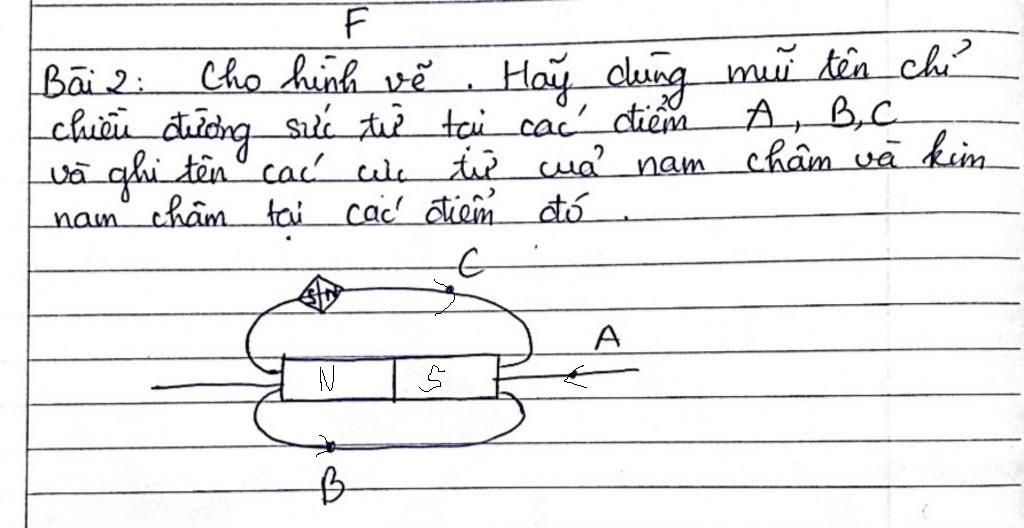 F
Bài 2: Cho hình vẽ. Hãy dùng mũi tên chỉ
chiều đường sức từ tại các điểm A, B, C
và ghi tên các cực từ của nam châm và kim
nam châm tại các điểm đó.
C
S N
A
N S
B